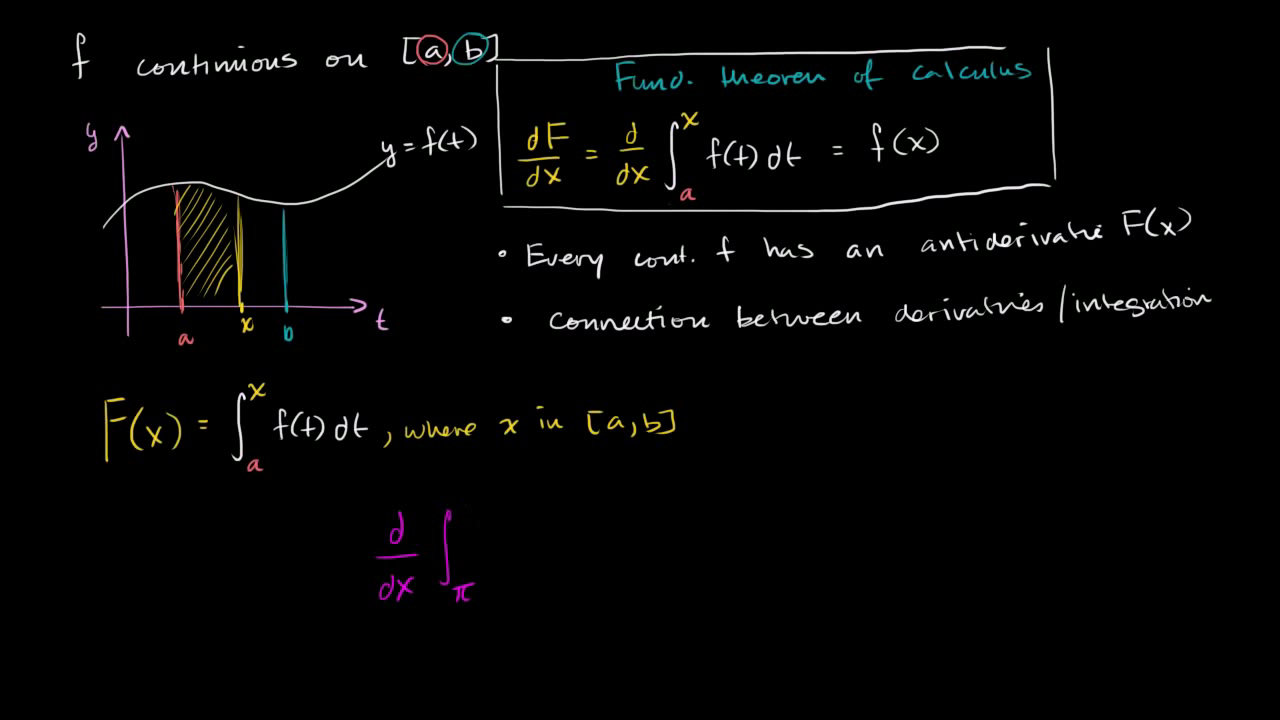 f continuous on [a, b]
Fund. theorem of calculus
dF/dx = d/dx ∫_a^x f(t) dt = f(x)
y
y = f(t)
a
x
b
t
• Every cont. f has an antiderivative F(x)
• connection between derivatives/integration
F(x) = ∫_a^x f(t) dt, where x in [a, b]
d/dx ∫_π